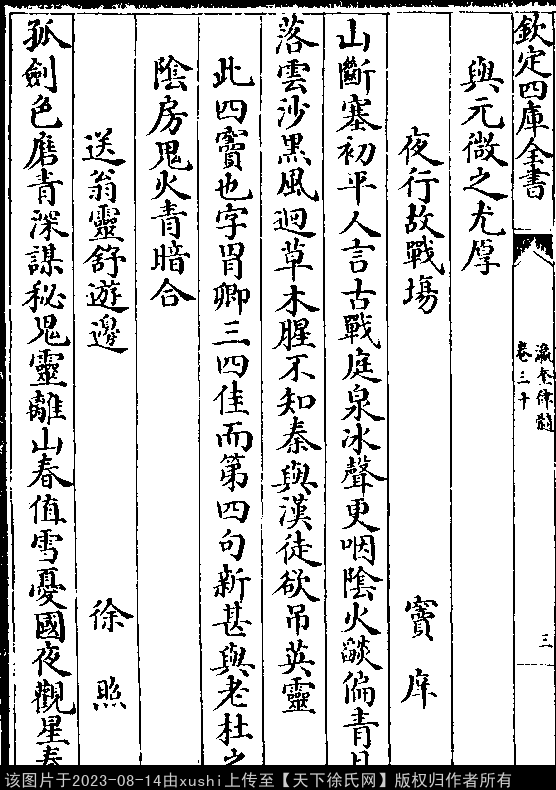 欽定四庫全書
瀛奎律髓
卷三十
三
與元微之尤厚
夜行故戰場 竇庠
山斷塞初平人言古戰庭泉冰聲更咽陰火𦦨偏青月
落雲沙黒風迴草木腥不知秦與漢徒欲吊英靈
此四竇也字胃卿三四佳而第四句新甚與老杜之
陰房鬼火青暗合
送翁靈舒遊邊 徐照
孤劍色磨青深謀秘鬼靈離山春值雪憂國夜觀星
该图片于2023-08-14由xushi上传至【天下徐氏网】版权归作者所有